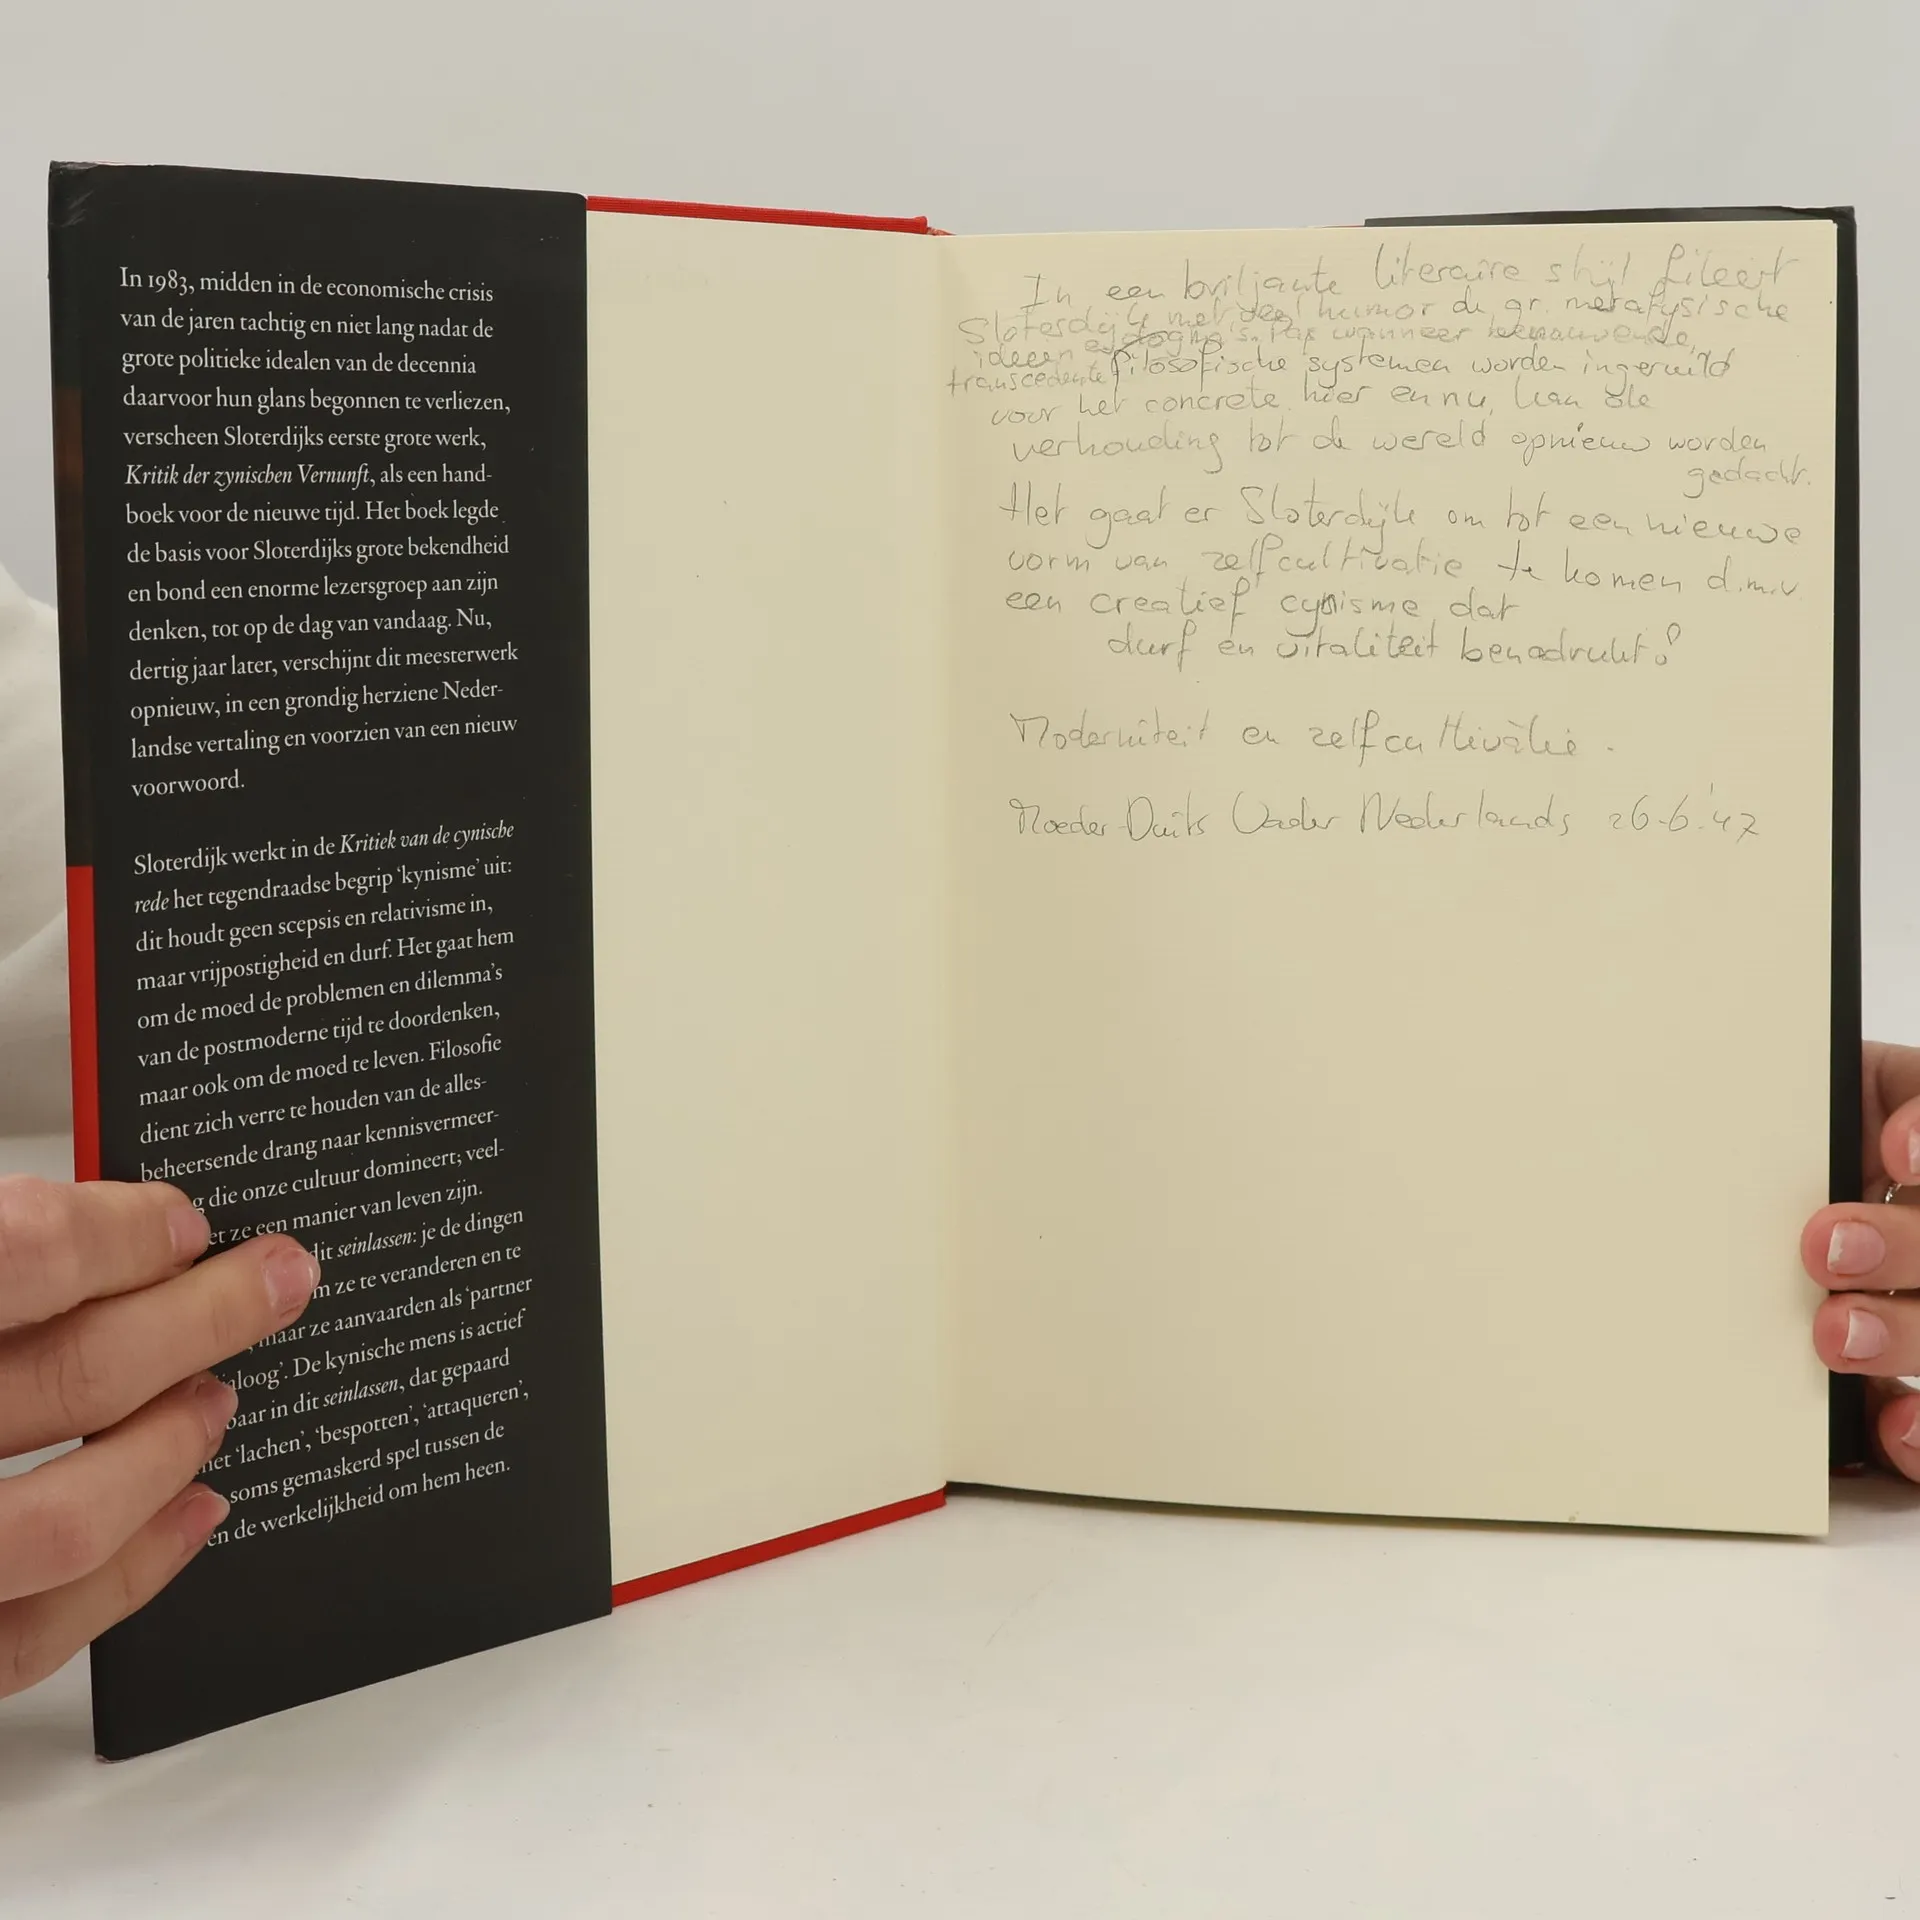 In 1983, midden in de economische crisis
van de jaren tachtig en niet lang nadat de
grote politieke idealen van de decennia
daarvoor hun glans begonnen te verliezen,
verscheen Sloterdijks eerste grote werk,
Kritik der zynischen Vernunft, als een hand-
boek voor de nieuwe tijd. Het boek legde
de basis voor Sloterdijks grote bekendheid
en bond een enorme lezersgroep aan zijn
denken, tot op de dag van vandaag. Nu,
dertig jaar later, verschijnt dit meesterwerk
opnieuw, in een grondig herziene Neder-
landse vertaling en voorzien van een nieuw
voorwoord.
Sloterdijk werkt in de Kritiek van de cynische
rede het tegendraadse begrip ‘kynisme’ uit:
dit houdt geen scepsis en relativisme in,
maar vrijpostigheid en durf. Het gaat hem
om de moed de problemen en dilemma’s
van de postmoderne tijd te doordenken,
maar ook om de moed te leven. Filosofie
dient zich verre te houden van de alles-
beheersende drang naar kennisvermeer-
die onze cultuur domineert; veel-
ze een manier van leven zijn.
dit seinlassen: je de dingen
ze te veranderen en te
maar ze aanvaarden als ‘partner
De kynische mens is actief
in dit seinlassen, dat gepaard
‘lachen’, ‘bespotten’, ‘attaqueren’,
soms gemaskerd spel tussen de
en de werkelijkheid om hem heen.
In een briljante literaire stijl fileert
Sloterdijk met veel humor de gr. metafysische
ideeen en dogma's. Pas wanneer benauwende,
transcedente filosofische systemen worden ingeruild
voor het concrete hier en nu, kan de
verhouding tot de wereld opnieuw worden
gedacht.
Het gaat er Sloterdijk om tot een nieuwe
vorm van zelfcultivatie te komen d.m.v.
een creatief cynisme dat
durf en vitaliteit benadrukt!
Moderniteit en zelfcultivatie.
Moeder Duits Vader Nederlands 26-6-'47